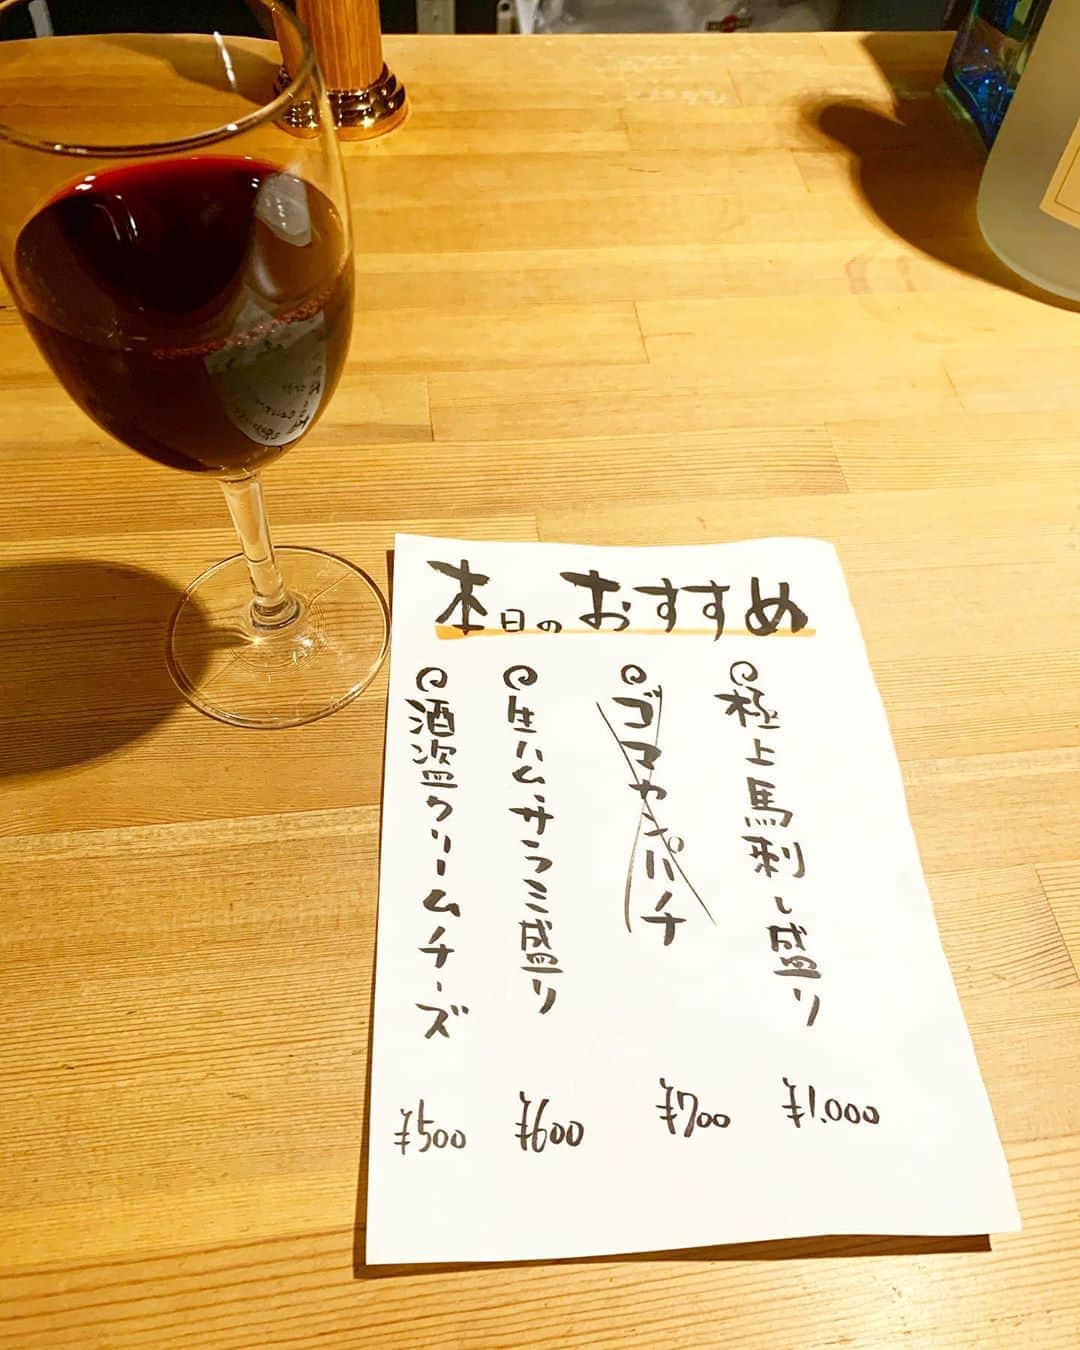 本日のおすすめ
極上馬刺し盛り ¥1.000
ゴマカンパチ ¥700
生ハム、サラミ盛り ¥600
酒盗クリームチーズ ¥500